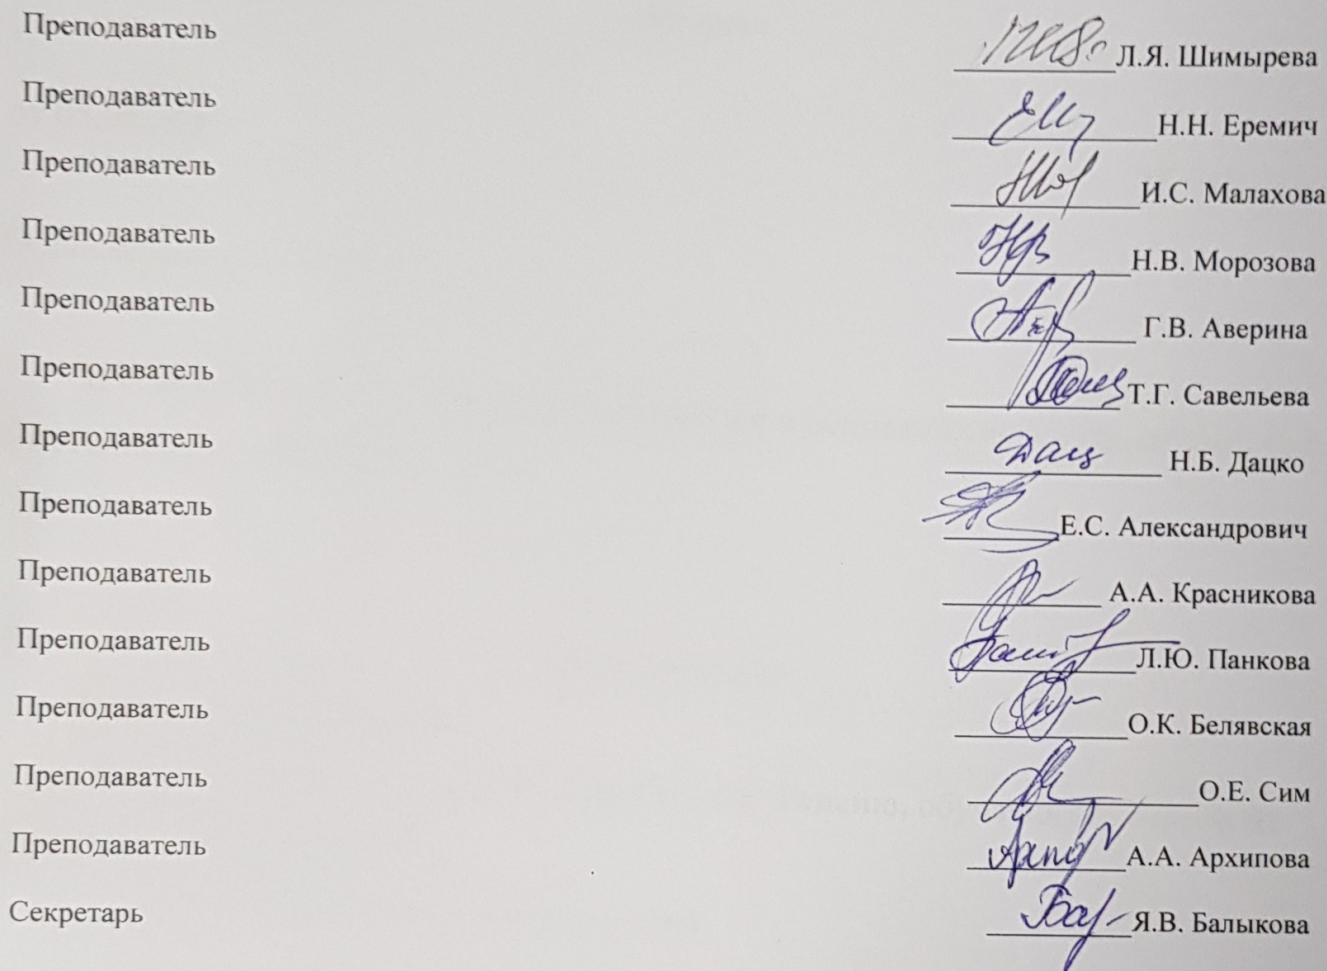 Преподаватель Л.Я. Шимырева
Преподаватель Н.Н. Еремич
Преподаватель И.С. Малахова
Преподаватель Н.В. Морозова
Преподаватель Г.В. Аверина
Преподаватель Т.Г. Савельева
Преподаватель Дац Н.Б. Дацко
Преподаватель Е.С. Александрович
Преподаватель А.А. Красникова
Преподаватель Л.Ю. Панкова
Преподаватель О.К. Белявская
Преподаватель О.Е. Сим
Преподаватель А.А. Архипова
Секретарь Я.В. Балыкова